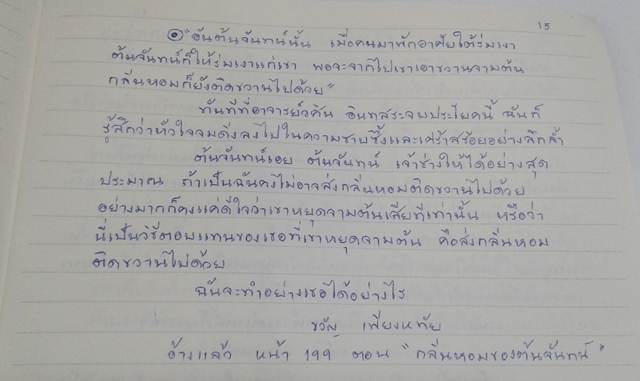 15
๏ "อันต้นจันทน์นั้น เมื่อคนมาพักอาศัยใต้ร่มเงา
ต้นจันทน์ก็ให้ร่มเงาแก่เขา พอจะจากไปเขาเอาขวานจามต้น
กลิ่นหอมก็ยังติดขวานไปด้วย"
ทันทีที่อาจารย์วศิน อินทสระจบประโยคนี้ ฉันก็
รู้สึกว่าหัวใจจมดิ่งลงไปในความซาบซึ้งและเศร้าสร้อยอย่างลึกล้ำ
ต้นจันทน์เอย ต้นจันทน์ เจ้าช่างให้ได้อย่างสุด
ประมาณ ถ้าเป็นฉันคงไม่อาจส่งกลิ่นหอมติดขวานไปด้วย
อย่างมากก็คงแค่ดีใจว่าเขาหยุดจามต้นเสียทีเท่านั้น หรือว่า
นี่เป็นวิธีตอบแทนของเธอที่เขาหยุดจามต้น คือส่งกลิ่นหอม
ติดขวานไปด้วย
ฉันจะทำอย่างเธอได้อย่างไร
ขวัญ เพียงหทัย
อ้างแล้ว หน้า 199 ตอน "กลิ่นหอมของต้นจันทน์"